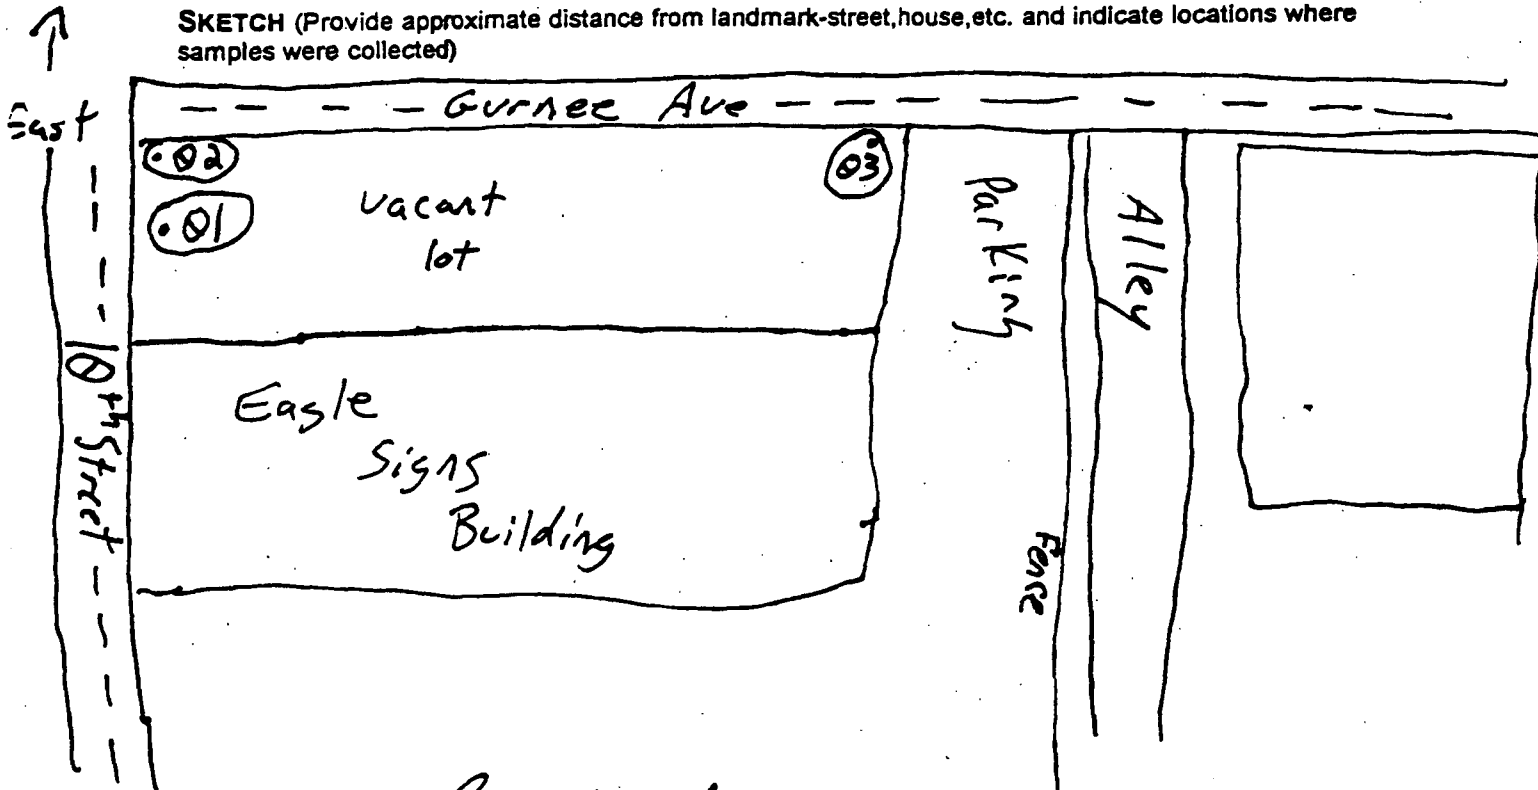 SKETCH (Provide approximate distance from landmark-street,house,etc. and indicate locations where
samples were collected)
East
Gurnee Ave
02
03
01
vacant
lot
Parking
Alley
10th Street
Eagle
Signs
Building
Fence